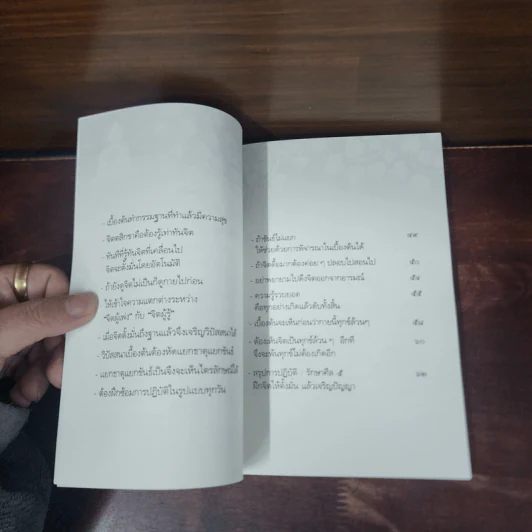 - เบื้องต้นทำกรรมฐานที่ทำแล้วมีความสุข
- จิตตสิกขาคือต้องรู้เท่าทันจิต
- ทันทีที่รู้ทันจิตที่เคลื่อนไป
จิตจะตั้งมั่นโดยอัตโนมัติ
- ถ้ายังดูจิตไม่เป็นก็ดูกายไปก่อน
- ให้เข้าใจความแตกต่างระหว่าง
“จิตผู้เพ่ง” กับ “จิตผู้รู้”
- เมื่อจิตตั้งมั่นถึงฐานแล้วจึงเจริญวิปัสสนาได้
- วิปัสสนาเบื้องต้นต้องหัดแยกธาตุแยกขันธ์
- แยกธาตุแยกขันธ์เป็นจึงจะเห็นไตรลักษณ์ได้
- ต้องฝึกซ้อมการปฏิบัติในรูปแบบทุกวัน
- ถ้าขันธ์ไม่แยก ๔๙
ให้ช่วยด้วยการพิจารณาในเบื้องต้นได้
- ถ้าจิตดื้อมากต้องค่อยๆ ปลอบไปสอนไป ๕๐
- อย่าพยายามไปดึงจิตออกจากอารมณ์ ๕๔
- ความรู้รวบยอด ๕๕
คือทุกอย่างเกิดแล้วดับทั้งสิ้น
- เบื้องต้นจะเห็นก่อนว่ากายนี้ทุกข์ล้วนๆ ๕๘
- ต้องเห็นจิตเป็นทุกข์ล้วนๆ อีกที ๖๐
จึงจะพ้นทุกข์ไม่ต้องเกิดอีก
- สรุปการปฏิบัติ : รักษาศีล ๕ ๖๒
ฝึกจิตให้ตั้งมั่น แล้วเจริญปัญญา